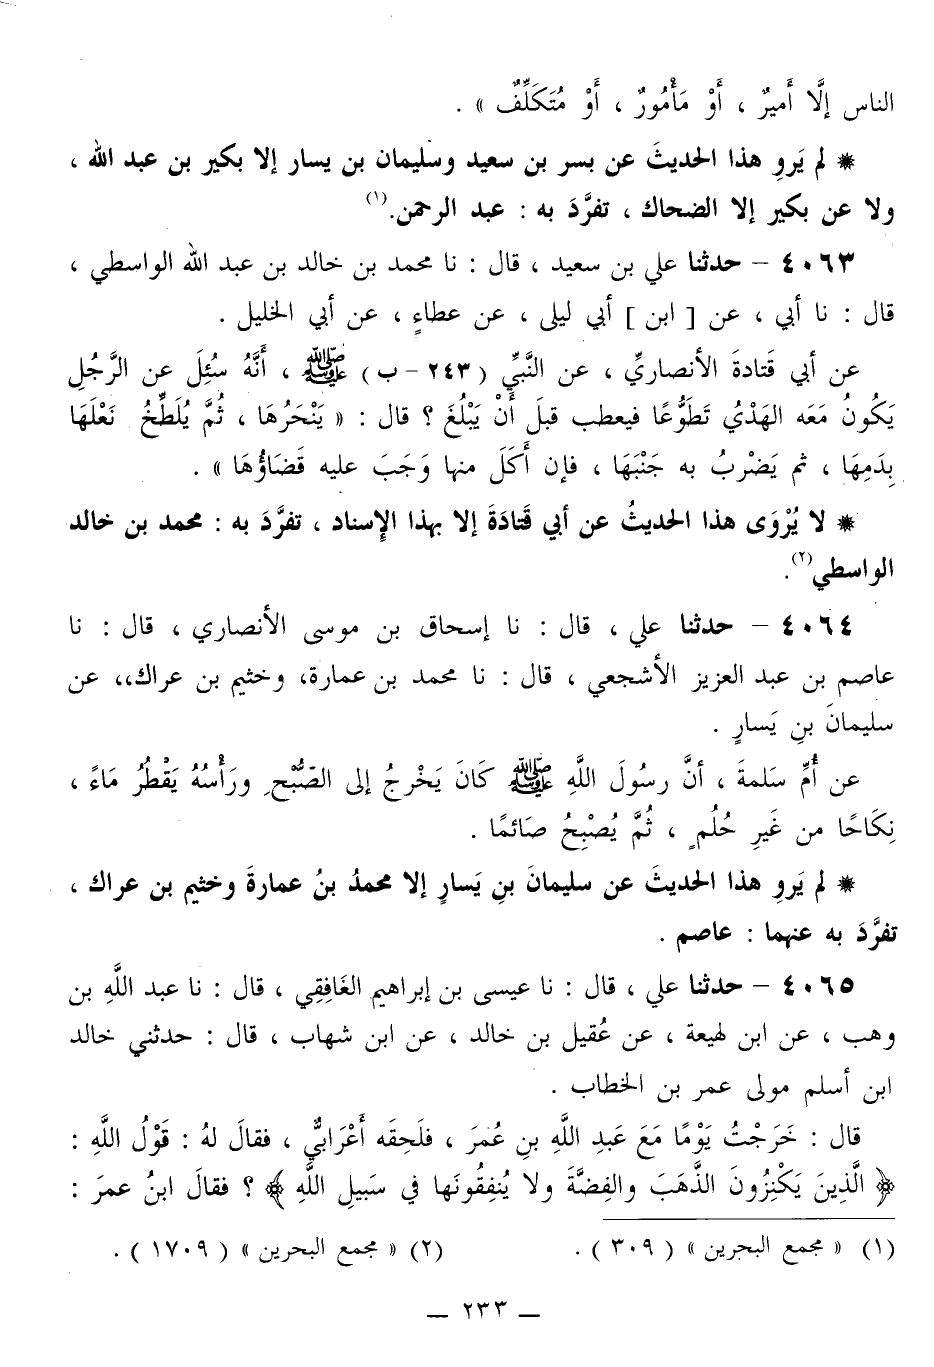 الناس إلَّا أَميرٌ ، أَوْ مَأْمُورٌ ، أَوْ مُتَكَلِّفٌ » .
* لم يَروِ هذا الحديثَ عن بسر بن سعيد وسليمان بن يسار إلا بكير بن عبد الله ،
ولا عن بكير إلا الضحاك ، تفرَّدَ به : عبد الرحمن.(١)
٤٠٦٣ – حدثنا علي بن سعيد ، قال : نا محمد بن خالد بن عبد الله الواسطي ،
قال : نا أبي ، عن [ ابن ] أبي ليلى ، عن عطاءٍ ، عن أبي الخليل .
عن أبي قَتادةَ الأنصاريِّ ، عن النَّبيِّ (٢٤٣-ب) ﷺ ، أَنَّهُ سُئِلَ عن الرَّجُلِ
يَكُونُ مَعَه الهَدْيُ تَطَوُّعًا فيعطب قبلَ أَنْ يَبْلُغَ ؟ قال : « يَنْحَرُهَا ، ثُمَّ يُلَطِّخُ نَعْلَهَا
بِدَمِهَا ، ثم يَضْرِبُ به جَنْبَهَا ، فإن أَكَلَ منها وَجَبَ عليه قَضَاؤُهَا » .
* لا يُرْوَى هذا الحديثُ عن أبي قَتادَةَ إلا بهذا الإسناد ، تفرَّدَ به : محمد بن خالد
الواسطي(٢).
٤٠٦٤ – حدثنا علي ، قال : نا إسحاق بن موسى الأنصاري ، قال : نا
عاصم بن عبد العزيز الأشجعي ، قال : نا محمد بن عمارة، وخثيم بن عراك،، عن
سليمانَ بنِ يَسارٍ .
عن أُمِّ سَلمةَ ، أنَّ رسُولَ اللَّهِ ﷺ كَانَ يَخْرجُ إلى الصُّبْحِ ورَأْسُهُ يَقْطُرُ مَاءً ،
نِكَاحًا من غَيرِ حُلُمٍ ، ثُمَّ يُصْبِحُ صَائمًا .
* لم يَروِ هذا الحديثَ عن سليمانَ بنِ يَسارٍ إلا محمدُ بنُ عمارةَ وخثيم بن عراك ،
تفرَّدَ به عنهما : عاصم .
٤٠٦٥ – حدثنا علي ، قال : نا عيسى بن إبراهيم الغَافِقِي ، قال : نا عبد اللَّهِ بن
وهب ، عن ابن لهيعة ، عن عُقيل بن خالد ، عن ابن شهاب ، قال : حدثني خالد
ابن أسلم مولى عمر بن الخطاب .
قال : خَرَجْتُ يَوْمًا مَعَ عَبدِ اللَّهِ بنِ عُمرَ ، فلَحِقَه أَعْرَابيٌّ ، فقالَ لهُ : قَوْلُ اللَّهِ :
﴿ الَّذِينَ يَكْنِزُونَ الذَّهَبَ والفِضَّةَ ولا يُنفِقُونَها في سَبيلِ اللَّهِ ﴾ ؟ فقالَ ابنُ عمرَ :
(١) « مجمع البحرين » ( ٣٠٩ ) .
(٢) « مجمع البحرين » ( ١٧٠٩ ) .
– ٢٣٣ –